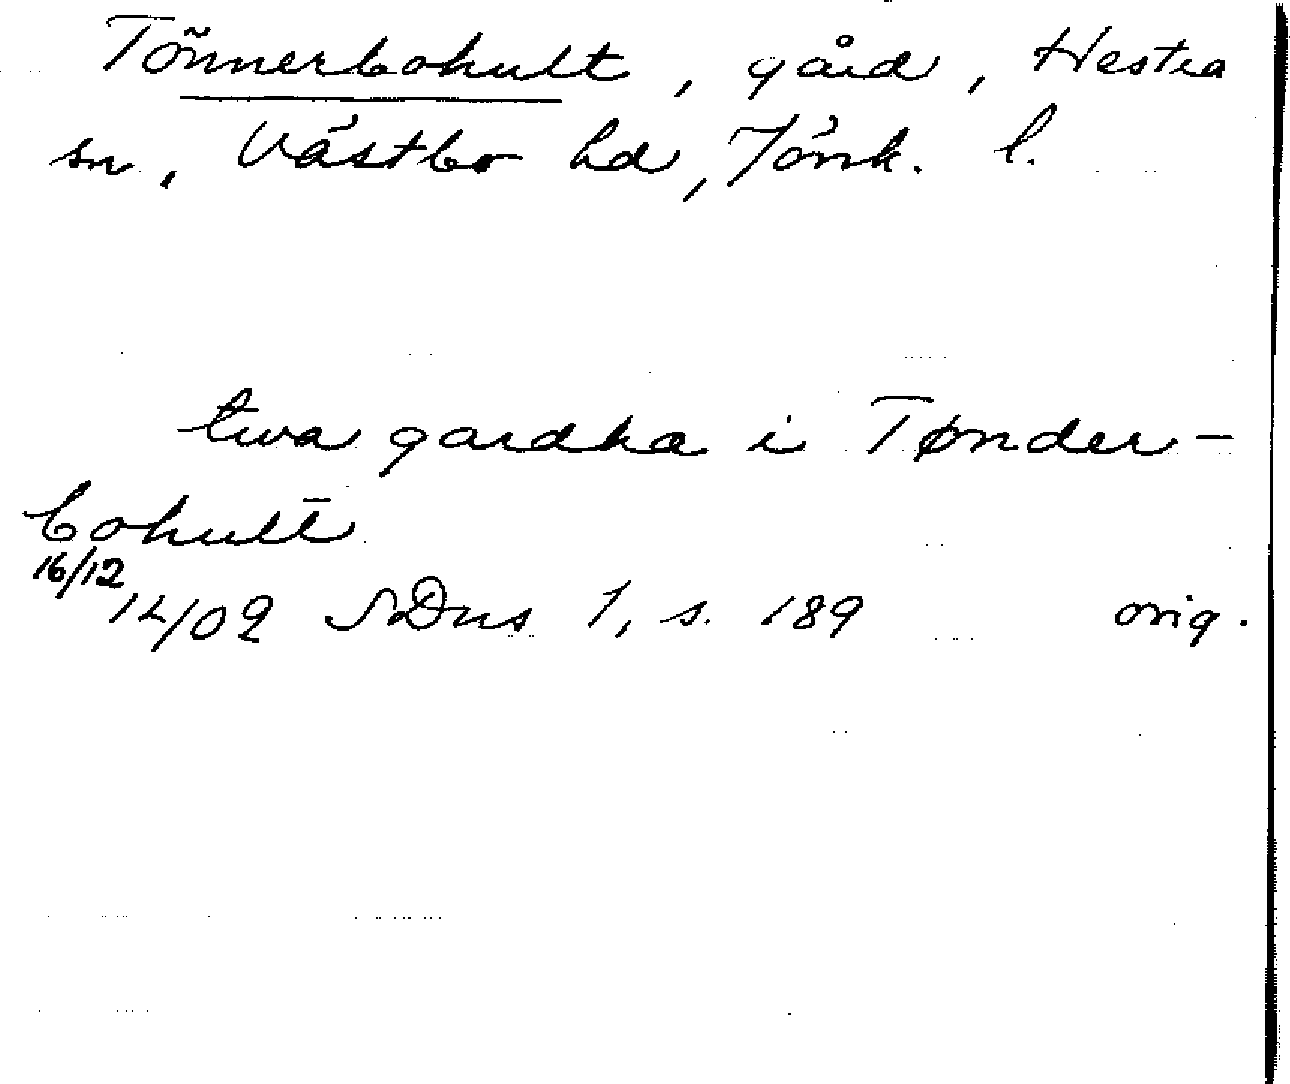 Tönnerbohult, gård, Hestra
sn, Västbo hd, Jönk. l.
twa gardha i Tønder-
bohult
16/12
1402 SDns 1, s. 189 orig.